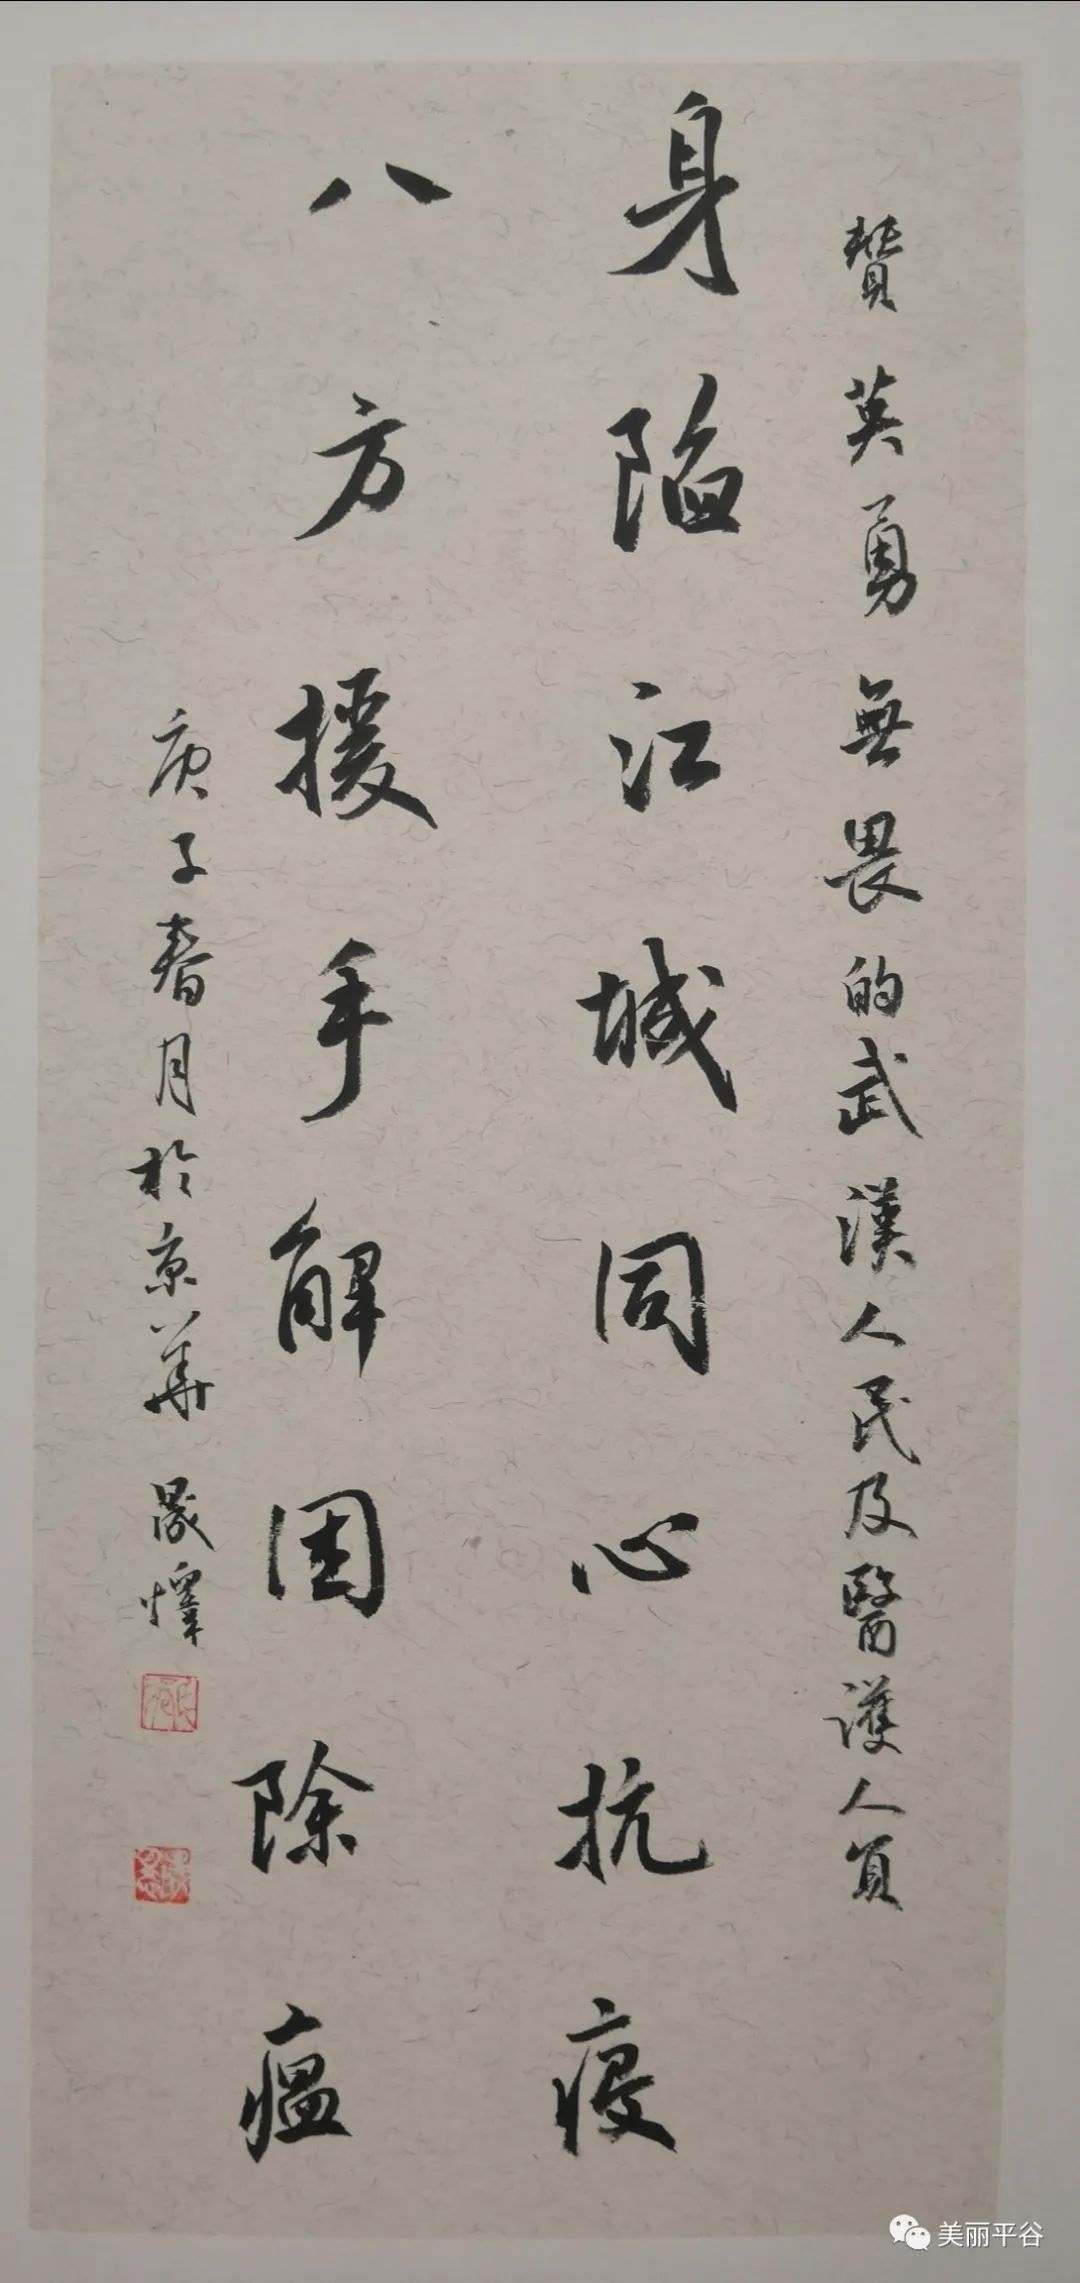 贊英勇無畏的武漢人民及醫護人員
身陷江城同心抗疫
八方援手解困除瘟
庚子春月於京華晟懌
美丽平谷